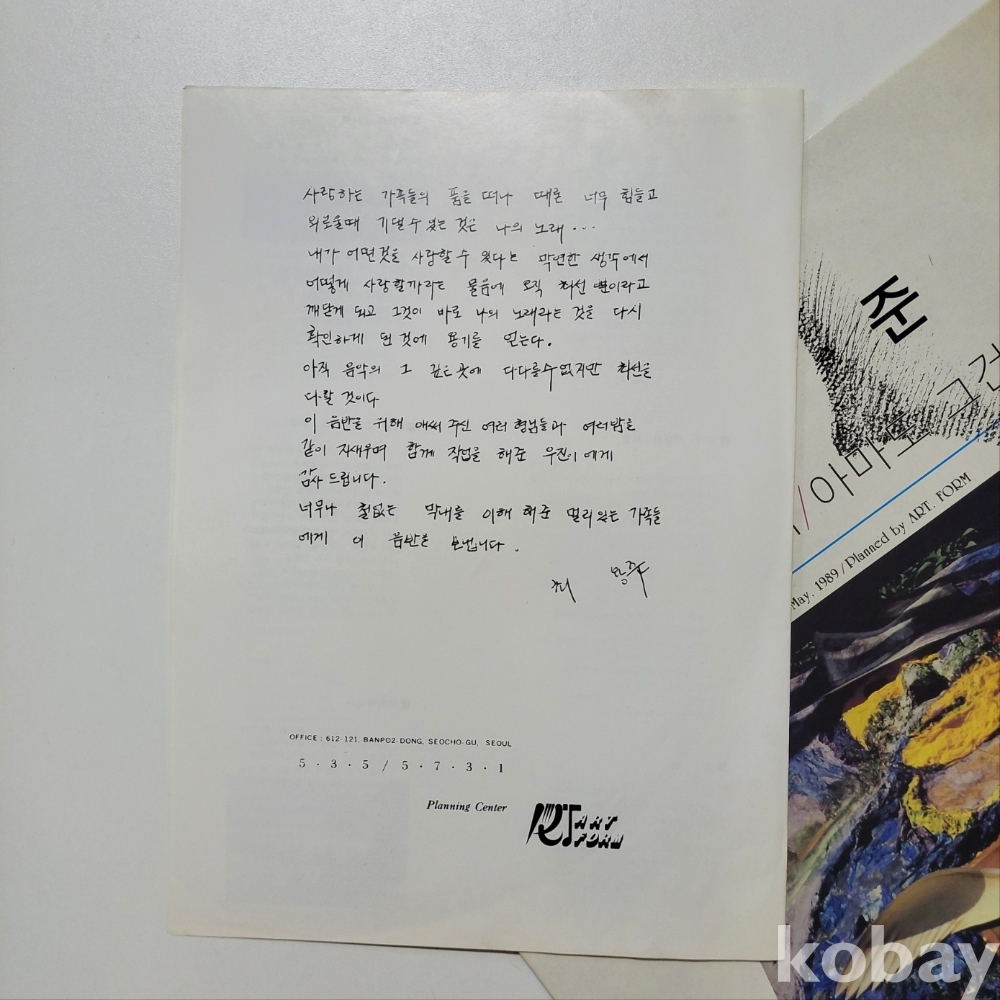 사랑하는 가족들의 품을 떠나 때론 너무 힘들고
외로울때 기댈 수 있는 것은 나의 노래...
내가 어떤것을 사랑할 수 있다는 막연한 생각에서
어떻게 사랑할까라는 물음에 오직 최선 뿐이라고
깨닫게 되고 그것이 바로 나의 노래라는 것을 다시
확인하게 된 것에 용기를 얻는다.
아직 음악의 그 깊은 곳에 다다를수 없지만 최선을
다할 것이다
이 음반을 위해 애써 주신 여러 형님들과 여러밤을
같이 지새우며 함께 작업을 해준 우진이에게
감사 드립니다.
너무나 철없는 막내를 이해 해준 멀리있는 가족들
에게 이 음반을 보냅니다.
최
OFFICE : 612-121, BANPO2-DONG, SEOCHO-GU, SEOUL
5·3·5/5·7·3·1
Planning Center
ART FORM
준
/아마도 그건
May. 1989/Planned by ART. FORM
kobay